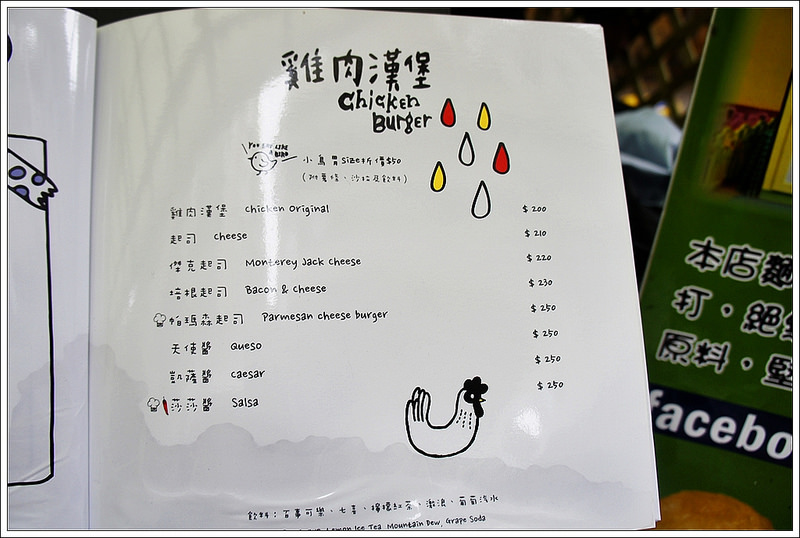 雞肉漢堡
Chicken
Burger
YOU EAT LIKE
A BIRD
小鳥胃size折價$50
(附薯條、沙拉及飲料)
雞肉漢堡 Chicken Original $ 200
起司 Cheese $ 210
傑克起司 Monterey Jack cheese $ 220
培根起司 Bacon & Cheese $ 230
帕瑪森起司 Parmesan cheese burger $ 250
天使醬 Queso $ 250
凱薩醬 Caesar $ 250
莎莎醬 Salsa $ 250
飲料:百事可樂、七喜、檸檬紅茶、激浪、葡萄汽水
Lemon Ice Tea Mountain Dew, Grape Soda
本店麵
打,絕
原料,堅
facebo